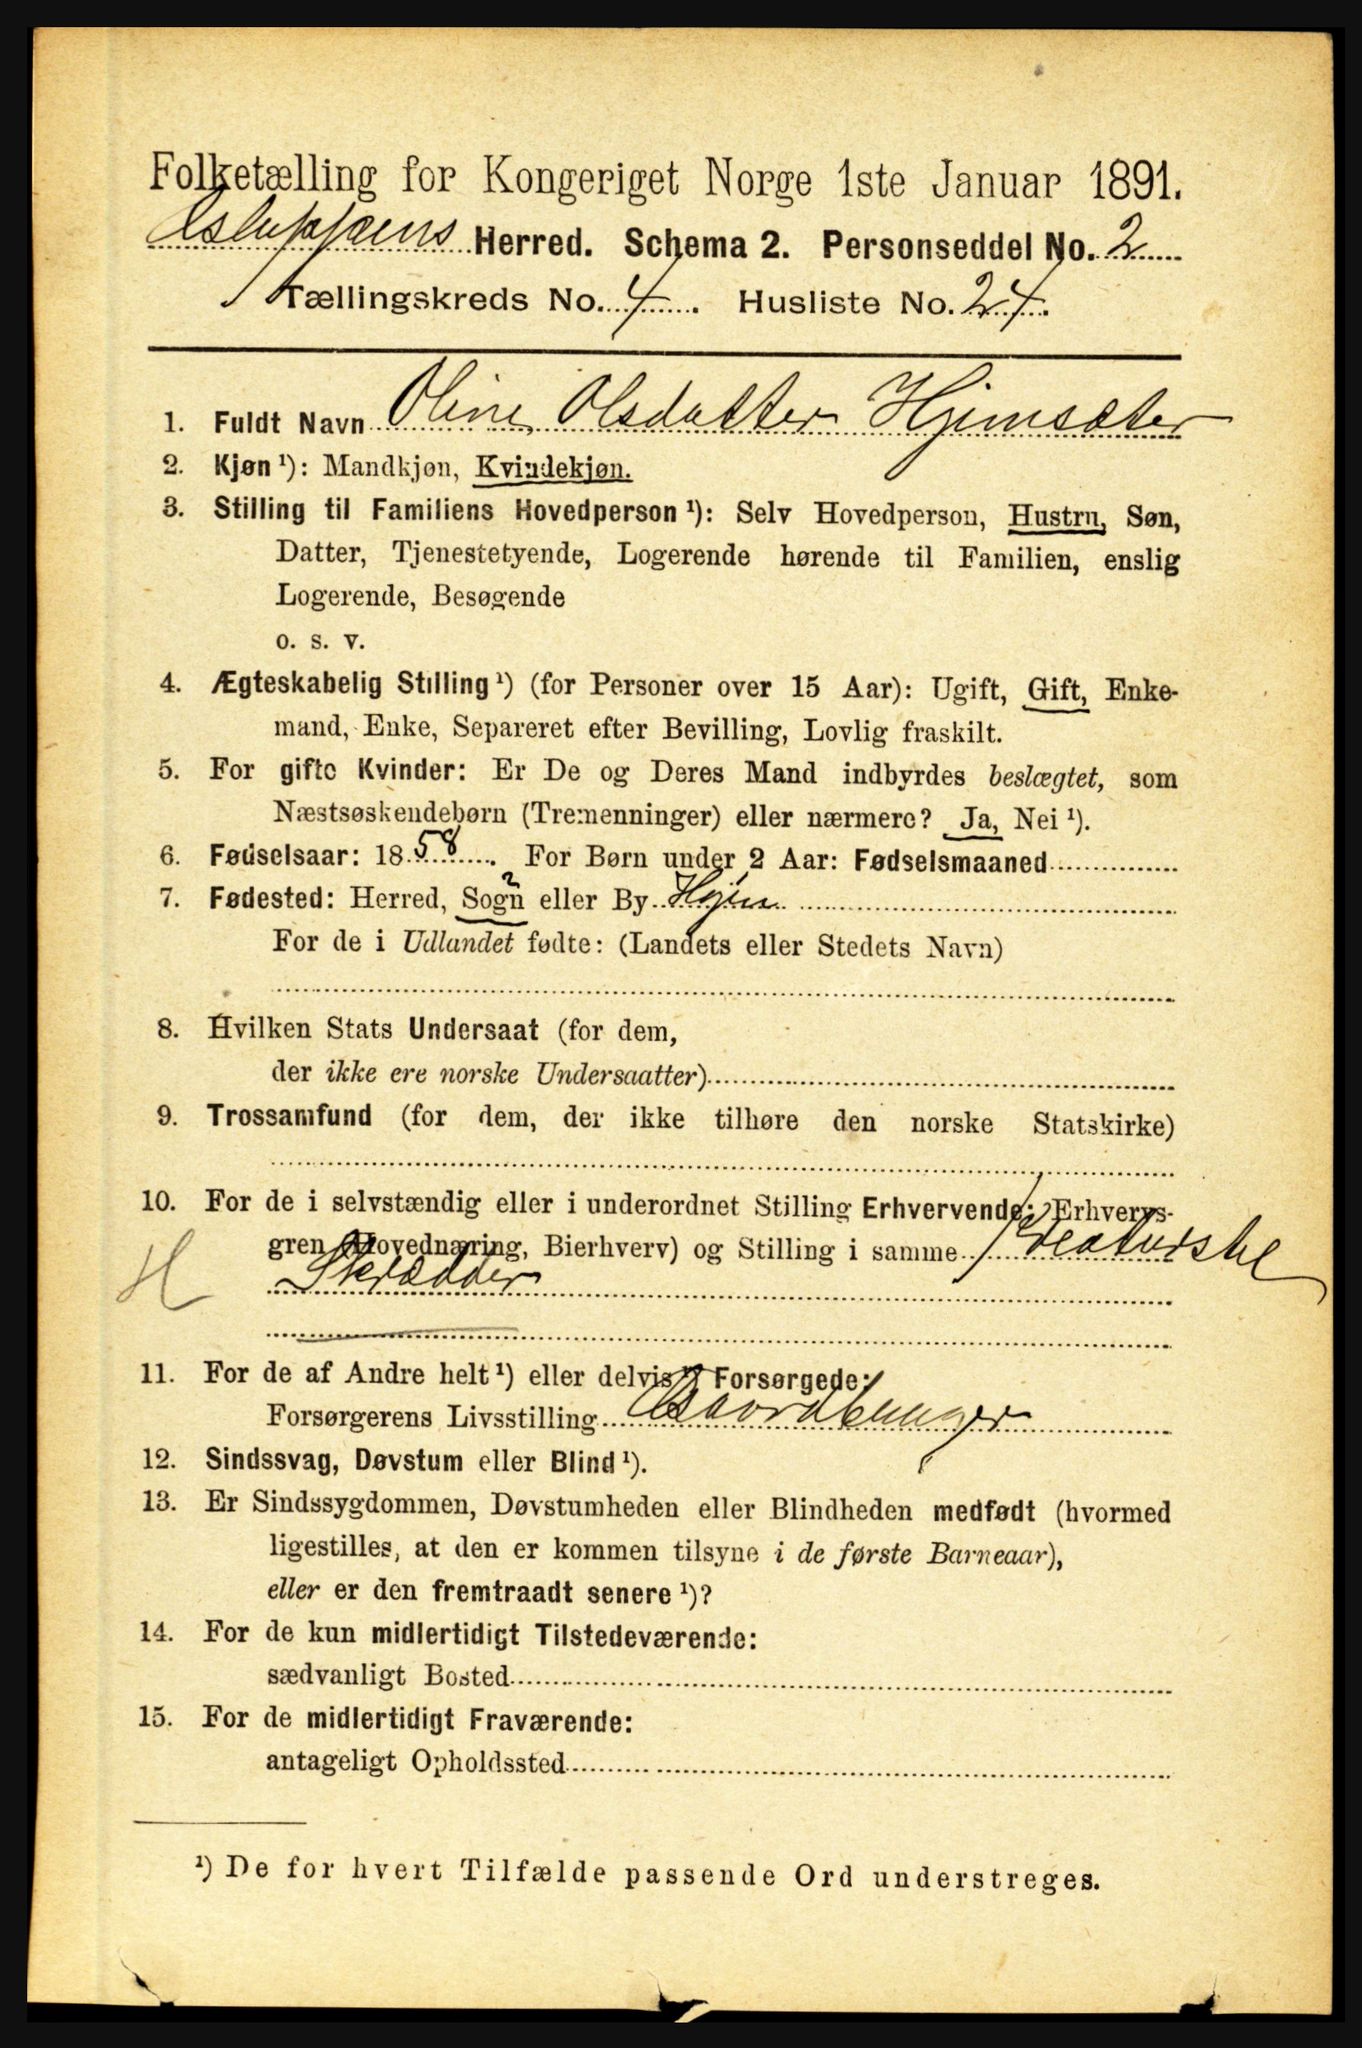 Folketælling for Kongeriget Norge 1ste Januar 1891.
Herred. Schema 2. Personseddel No. 2
Tællingskreds No. 4. Husliste No. 24.
1. Fuldt Navn Oline Olsdatter Hjemsæter
2. Kjøn ¹): Mandkjøn, Kvindekjøn.
3. Stilling til Familiens Hovedperson ¹): Selv Hovedperson, Hustru, Søn,
Datter, Tjenestetyende, Logerende hørende til Familien, enslig
Logerende, Besøgende
o. s. v.
4. Ægteskabelig Stilling ¹) (for Personer over 15 Aar): Ugift, Gift, Enke-
mand, Enke, Separeret efter Bevilling, Lovlig fraskilt.
5. For gifte Kvinder: Er De og Deres Mand indbyrdes beslægtet, som
Næstsøskendebørn (Tremenninger) eller nærmere? Ja, Nei ¹).
6. Fødselsaar: 1858. For Børn under 2 Aar: Fødselsmaaned
7. Fødested: Herred, Sogn eller By
For de i Udlandet fødte: (Landets eller Stedets Navn)
8. Hvilken Stats Undersaat (for dem,
der ikke ere norske Undersaatter)
9. Trossamfund (for dem, der ikke tilhøre den norske Statskirke)
10. For de i selvstændig eller i underordnet Stilling Erhvervende: Erhvervs-
gren (Hovednæring, Bierhverv) og Stilling i samme Kreaturstel
H Skrædder
11. For de af Andre helt ¹) eller delvis ¹) Forsørgede:
Forsørgerens Livsstilling Gaardbruger
12. Sindssvag, Døvstum eller Blind ¹).
13. Er Sindssygdommen, Døvstumheden eller Blindheden medfødt (hvormed
ligestilles, at den er kommen tilsyne i de første Barneaar),
eller er den fremtraadt senere ¹)?
14. For de kun midlertidigt Tilstedeværende:
sædvanligt Bosted
15. For de midlertidigt Fraværende:
antageligt Opholdssted
¹) De for hvert Tilfælde passende Ord understreges.